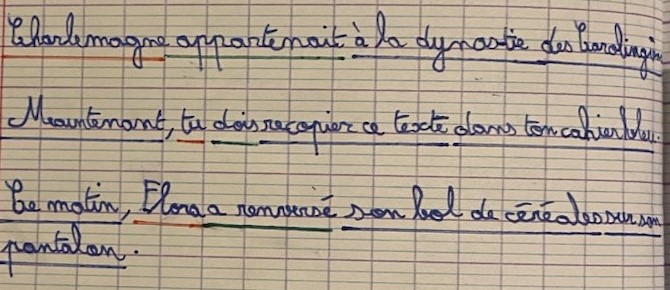 Charlemagne appartenait à la dynastie des Carolingin
Maintenant, tu dois recopier ce texte dans ton cahier bleu.
Ce matin, Flora a renversé son bol de céréales sur son
pantalon.